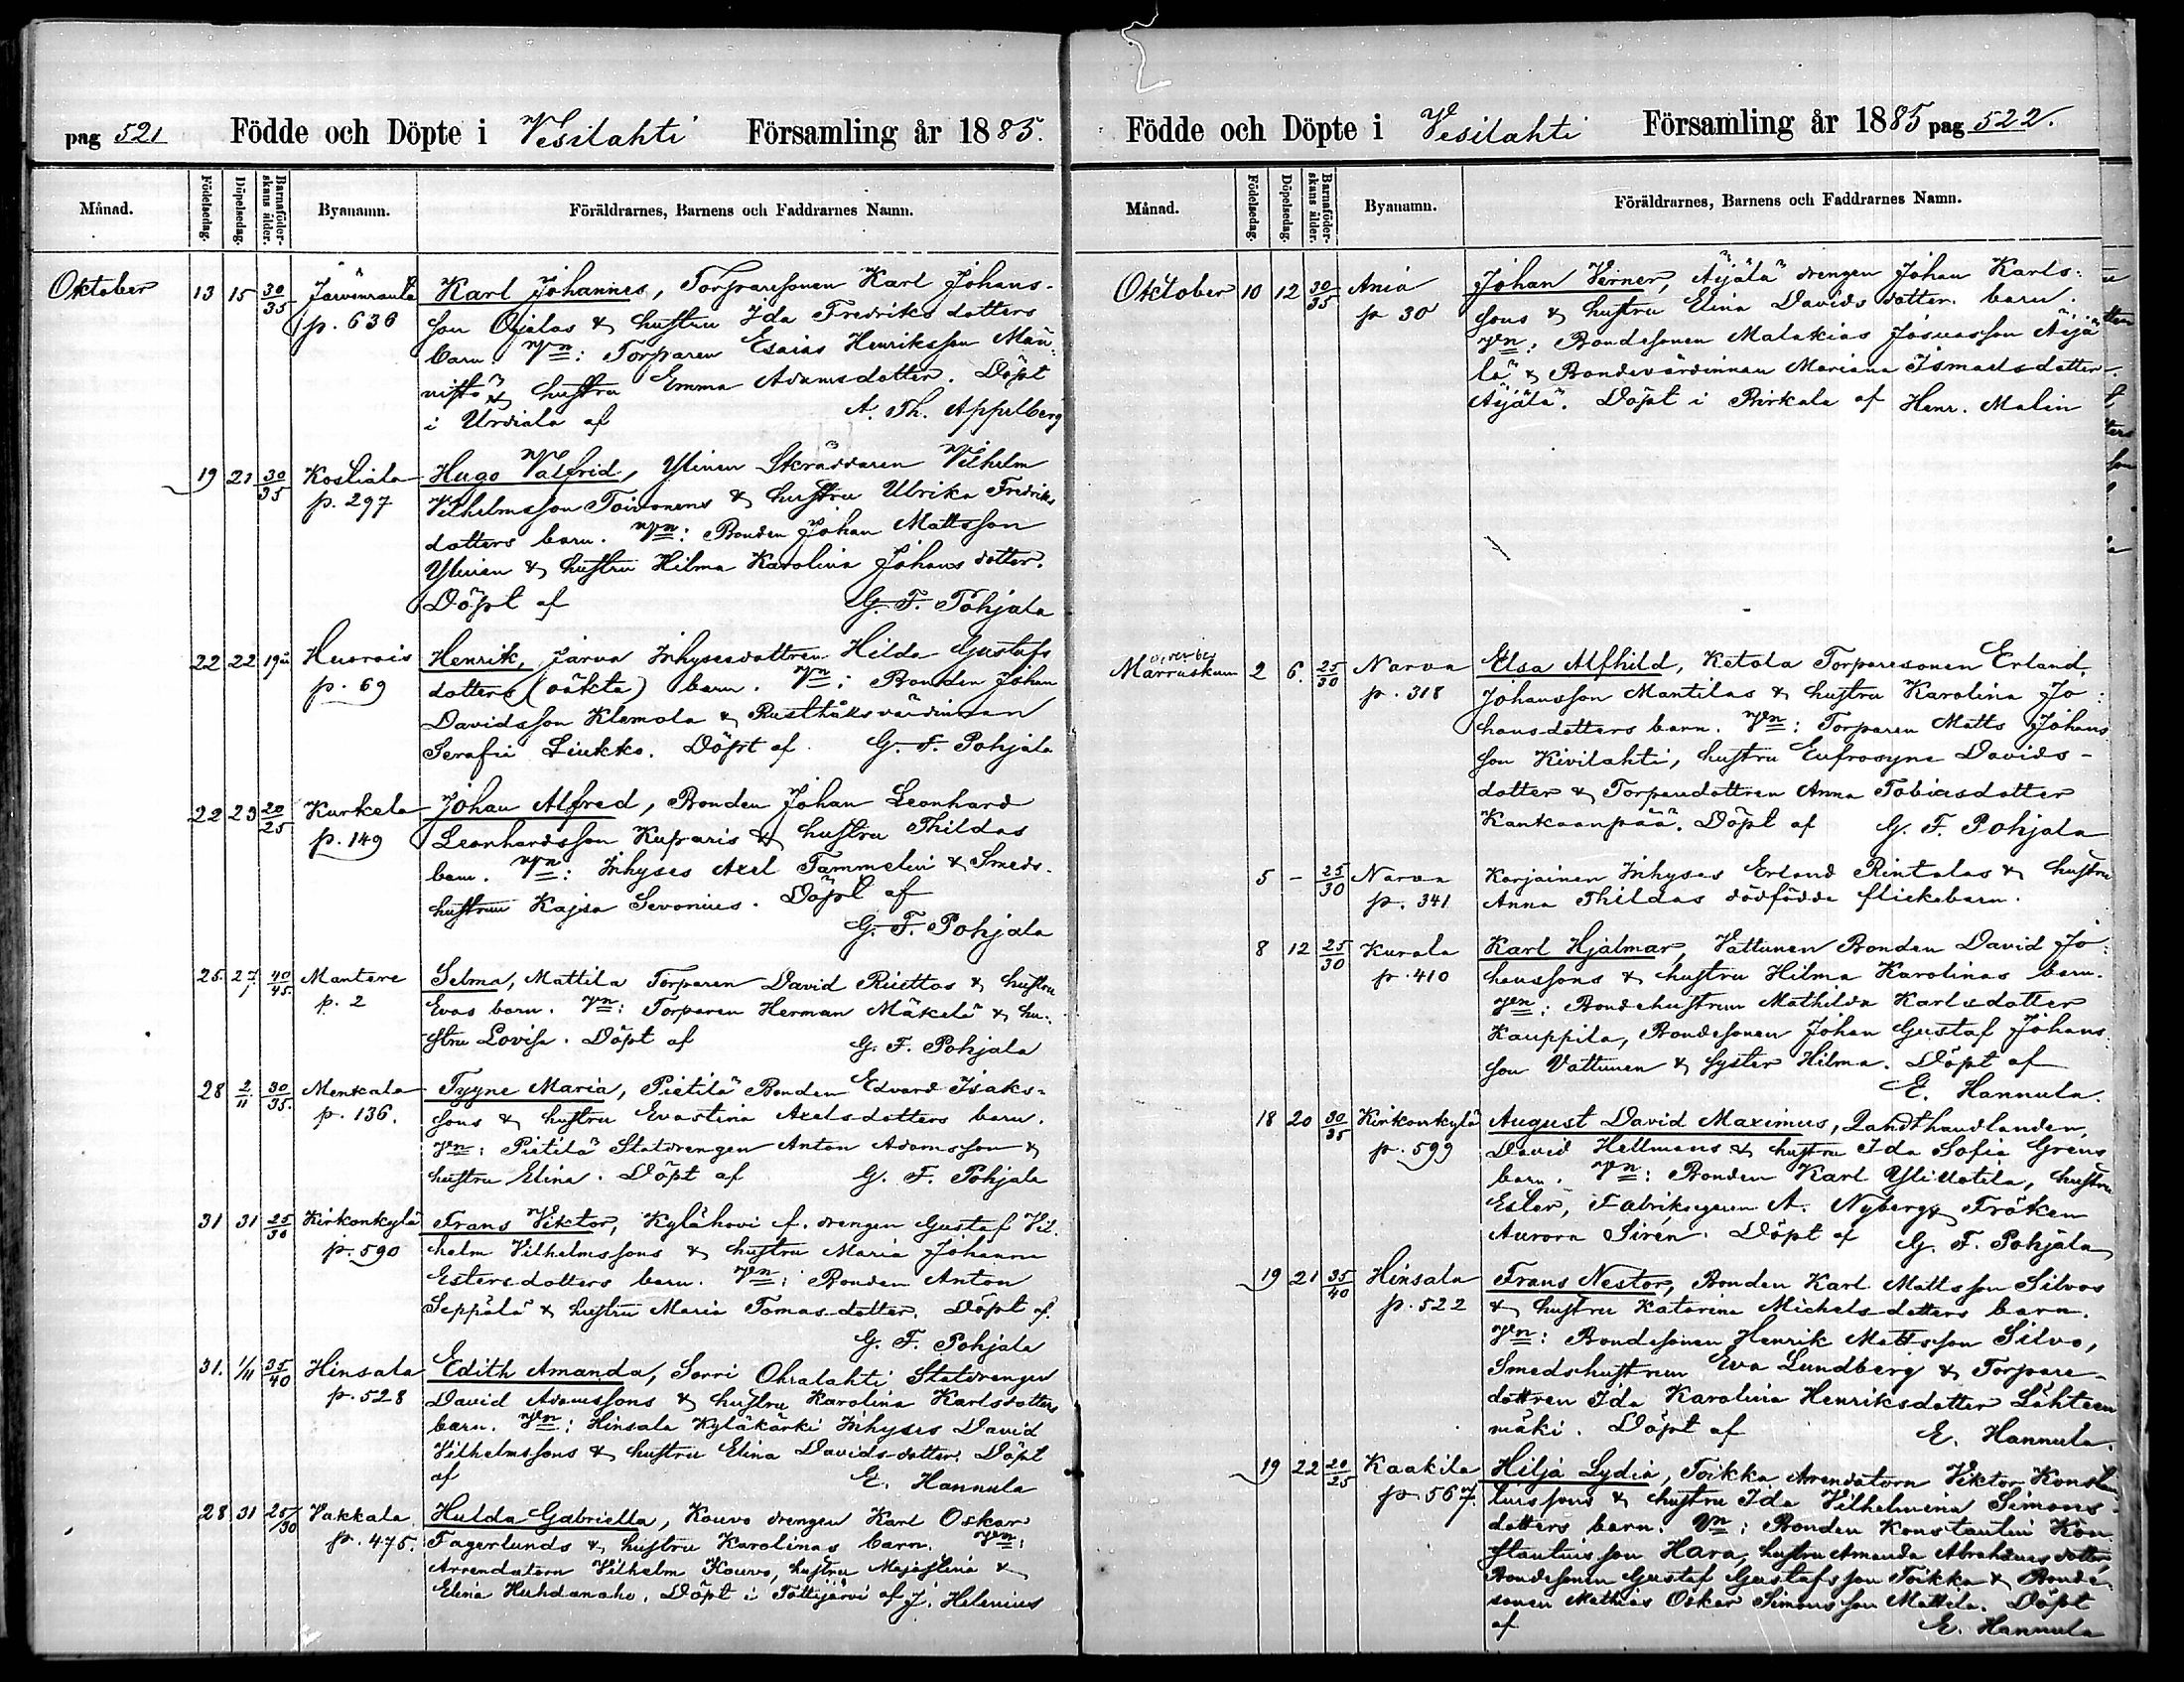 pag 521 Födde och Döpte i Vesilahti Församling år 1885.
Månad. Födelsedag. Döpelsedag. Barnaföderskans ålder. Byanamn. Föräldrarnes, Barnens och Faddrarnes Namn.
Oktober 13 15 30/35 Järvenranta Karl Johannes, Torparesonen Karl Johans-
p. 636 son Ojalas & hustru Ida Fredriks dotters
barn. Vn: Torparen Esaias Henriksson Män-
nistö & hustru Emma Adamsdotter. Döpt
i Urdiala af A. Th. Appelberg
19 21 30/35 Koskiala Hugo Valfrid, Ylinen Skräddaren Vilhelm
p. 297 Vilhelmsson Toivonens & hustru Ulrika Fredriks
dotters barn. Vn: Bonden Johan Mattsson
Ylinen & hustru Hilma Karolina Johans dotter.
Döpt af G. F. Pohjala
22 22 19 Huorois Henrik, Jarva Inhysesdottren Hilda Gustafs
p. 69 dotters (oäkta) barn. Vn: Bonden Johan
Davidsson Klemola & Rusthållsvärdinnan
Serafia Liukko. Döpt af G. F. Pohjala
22 23 20/25 Kurkela Johan Alfred, Bonden Johan Leonhard
p. 149 Leonhardsson Kuparis & hustru Thildas
barn. Vn: Inhyses Axel Tammelin & Smeds-
hustrun Kajsa Sevonius. Döpt af
G. F. Pohjala
25. 27 40/45. Mantere Selma, Mattila Torparen David Riiettas & hustru
p. 2 Evas barn. Vn: Torparen Herman Mäkelä & hu-
stru Lovisa. Döpt af G. F. Pohjala
28 2/11 30/35. Menkala Tyyne Maria, Pietilä Bonden Edvard Isaks-
p. 136. sons & hustru Evastina Axelsdotters barn.
Vn: Pietilä Statdrengen Anton Adamsson &
hustru Elina. Döpt af G. F. Pohjala
31 31 25/30 Kirkonkylä Frans Viktor, Kylähovi f. drengen Gustaf Vil-
p. 590 helm Vilhelmssons & hustru Maria Johanna
Estersdotters barn. Vn: Bonden Anton
Seppälä & hustru Maria Tomas-dotter. Döpt af
G. F. Pohjala
31. 1/11 35/40 Hinsala Edith Amanda, Sorri Ohralahti Statdrengen
p. 528 David Adamssons & hustru Karolina Karlsdotters
barn. Vn: Hinsala Kyläkärki Inhyses David
Vilhelmssons & hustru Elina Davids-dotter. Döpt
af E. Hannula
28 31 25/30 Vakkala Hulda Gabriella, Kouvo drengen Karl Oskar
p. 475. Fagerlunds & hustru Karolinas barn. Vn:
Arrendatorn Vilhelm Kouvo, hustru Majastina &
Elina Huhdanaho. Döpt i Tottijärvi af J. Helenius
Födde och Döpte i Vesilahti Församling år 1885 pag 522.
Månad. Födelsedag. Döpelsedag. Barnaföderskans ålder. Byanamn. Föräldrarnes, Barnens och Faddrarnes Namn.
Oktober 10 12 30/35 Ania Johan Verner, Äijälä drengen Johan Karls-
p 30 sons & hustru Elina Davids dotter barn.
Vn: Bondesonen Malakias Josuasson Äijä
lä & Bondevärdinnan Mariana Ismaelsdotter
Äijälä. Döpt i Birkala af Henr. Malin
november
Marraskuun 2 6. 25/30 Narva Elsa Alfhild, Ketola Torparesonen Erland
p. 318 Johansson Mantilas & hustru Karolina Jo-
hansdotters barn. Vn: Torparen Matts Johans
son Kivilahti, hustru Eufrosyne Davids-
dotter & Torparedottren Anna Tobiasdotter
Kankaanpää. Döpt af G. F. Pohjala
5 - 25/30 Narva Korjainen Inhyses Erland Rintalas & hustru
p. 341 Anna Thildas dödfödde flickebarn.
8 12 25/30 Kurala Karl Hjalmar, Vattunen Bonden David Jo-
p. 410 hanssons & hustru Hilma Karolinas barn.
Vn: Bondehustrun Mathilda Karlsdotter
Kauppila, Bondesonen Johan Gustaf Johans
son Vattunen & syster Hilma. Döpt af
E. Hannula.
18 20 30/35 Kirkonkylä August David Maximus, Landthandlanden
p. 599 David Hellmans & hustru Ida Sofia Gréns
barn. Vn: Bonden Karl Yliuotila, hustru
Ester, Fabriksegaren A. Nyberg & Fröken
Aurora Sirén. Döpt af G. F. Pohjala
19 21 35/40 Hinsala Frans Nestor, Bonden Karl Mattsson Silvos
p. 522 & hustru Katarina Michelsdotters barn.
Vn: Bondesonen Henrik Mattsson Silvo,
Smedshustrun Eva Lundberg & Torpare-
dottren Ida Karolina Henriksdotter Lähteen
mäki. Döpt af E. Hannula.
19 22 20/25 Kaakila Hilja Lydia, Toikka Arrendatorn Viktor Konstan
p. 567 tinssons & hustru Ida Vilhelmina Simons
dotters barn. Vn: Bonden Konstantin Kon-
stantinsson Hara, hustru Amanda Abrahams dotter,
Bondesonen Gustaf Gustafsson Toikka & Bonde
sonen Mathias Oskar Simonsson Mattila. Döpt
af E. Hannula